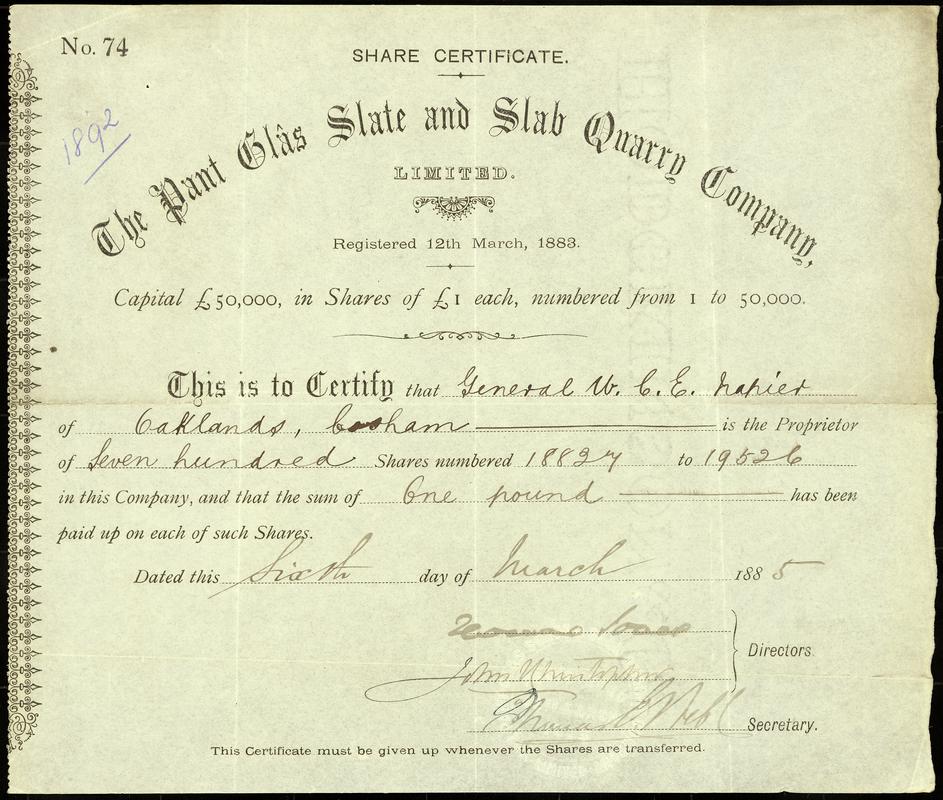 No. 74
SHARE CERTIFICATE.
1892
The Pant Glâs Slate and Slab Quarry Company,
LIMITED.
Registered 12th March, 1883.
Capital £50,000, in Shares of £1 each, numbered from 1 to 50,000.
This is to Certify that General W. C. E. Napier
of Oaklands, Cosham is the Proprietor
of Seven hundred Shares numbered 18827 to 19526
in this Company, and that the sum of One pound has been
paid up on each of such Shares.
Dated this Sixth day of March 1885
Jones
Directors.
John
Thomas Webb Secretary.
This Certificate must be given up whenever the Shares are transferred.